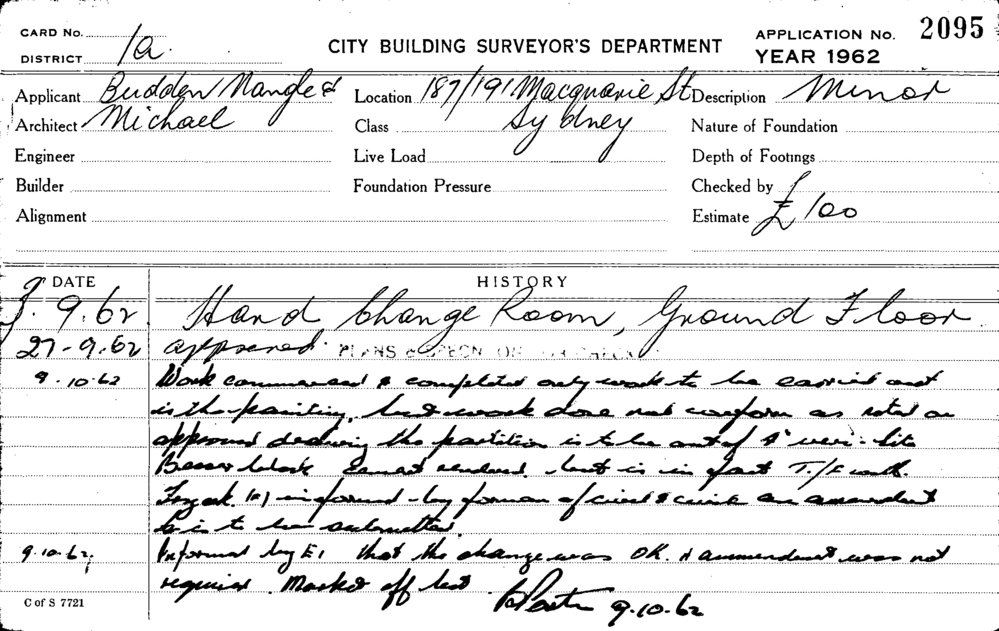 CARD No.
DISTRICT 1a.
CITY BUILDING SURVEYOR'S DEPARTMENT
APPLICATION No. 2095
YEAR 1962
Applicant Budden Nangle &
Location 187/191 Macquarie St
Description Minor
Architect Michael
Class Sydney
Nature of Foundation
Engineer
Live Load
Depth of Footings
Builder
Foundation Pressure
Checked by
Alignment
Estimate £100
DATE HISTORY
9.62 Hand Change Room, Ground Floor
27-9.62 approved PLANS & SPECN
9.10.62 Work commenced & completed only work to be carried out
is the painting, but work done not conform as noted on
approved drawing the partition is to be out of 4"
Besser block cement rendered but is in fact T./C
informed by forman of an amendment
is to be submitted
9.10.62 Informed by E1 that the change was OK. & ammendment was not
required. Marked off list 9.10.62
C of S 7721